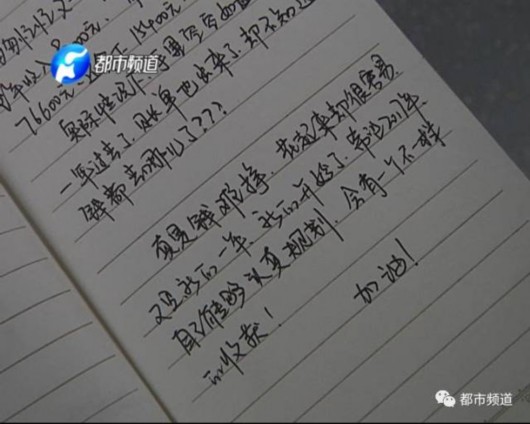 都市频道
15400元
76600元
实际情况
一年过去了,账单也出来了,却不知道
钱都去哪儿了???
真是钱难挣,花起来却很容易.
又是新的一年,新的开始了,希望2017年
自己能够认真规划,会有一个不一样
的收获! 加油!
都市频道